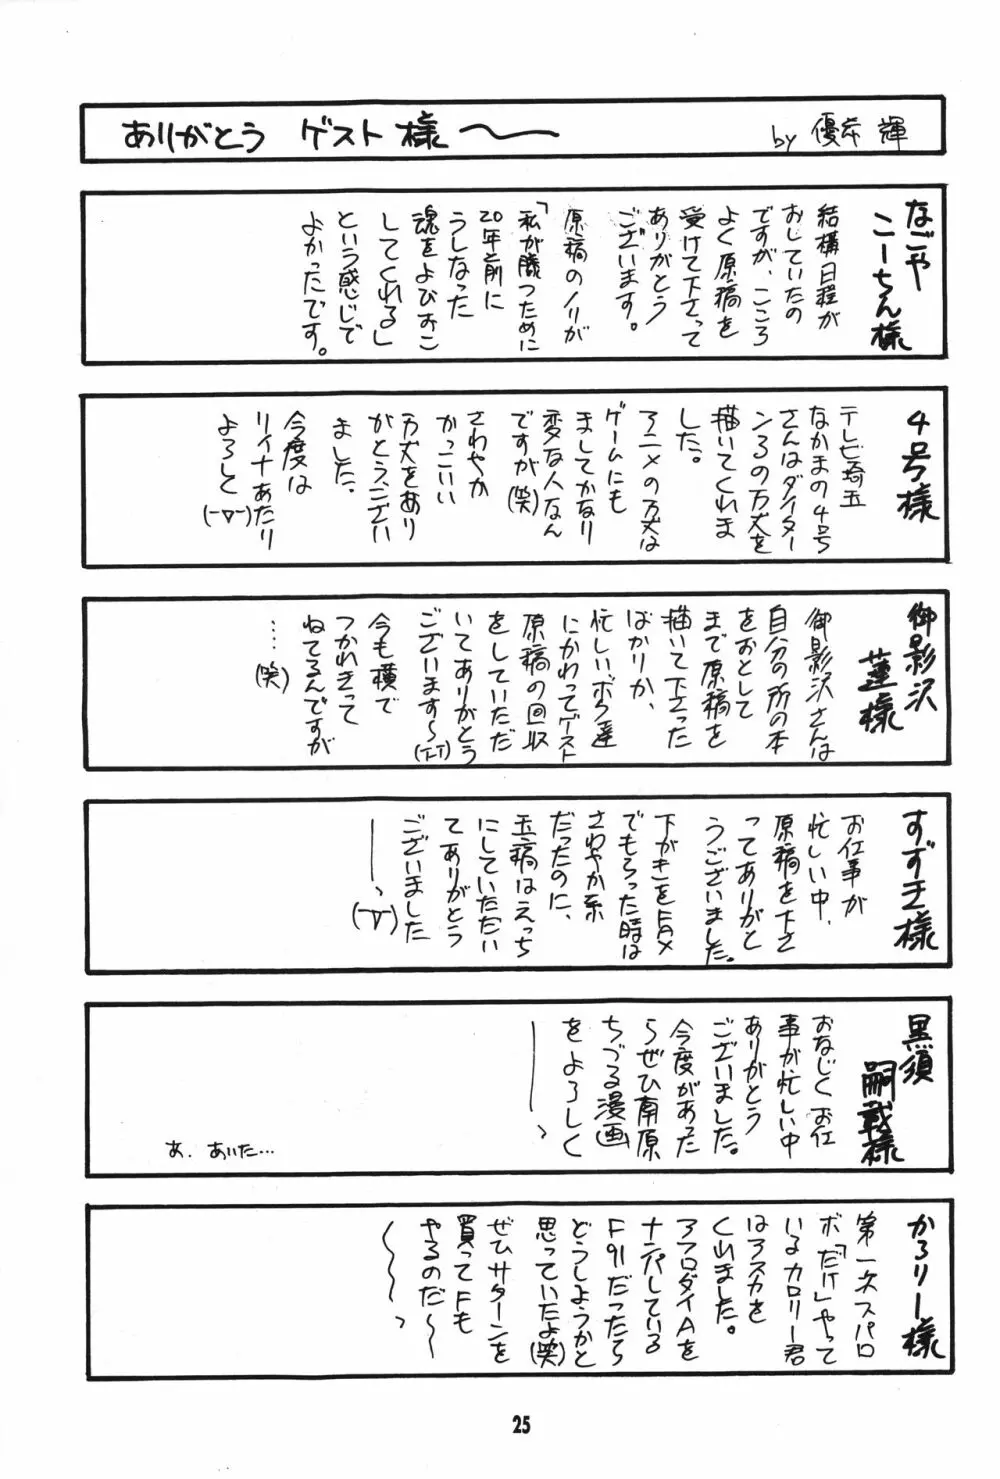 ありがとう ゲスト様〜
by 優本 輝
なごや
こーちん様
結構日程が
おしていたの
ですが、こころ
よく原稿を
受けて下さって
ありがとう
ございます。
原稿のノリが
「私が勝つために
20年前に
うしなった
魂をよびおこ
してくれる」
という感じで
よかったです。
4号様
テレビ埼玉
なかまの4号
さんはダイター
ン3の万丈を
描いてくれま
した。
アニメの万丈は
ゲームにも
ましてかなり
変な人なん
ですが(笑)
さわやか
かっこいい
万丈をあり
がとうござい
ました。
今度は
リィナあたり
よろしく
(ー▽ー)
御影沢
蓮様
御影沢さんは
自分の所の本
をおとして
まで原稿を
描いて下さった
ばかりか、
忙しいボク達
にかわってゲスト
原稿の回収
をしていただ
いてありがとう
ございます〜(T-T)
今も横で
つかれきって
ねてるんですが
……(笑)
すずき様
お仕事が
忙しい中、
原稿を下さ
ってありがと
うございました。
下がきをFAX
でもらった時は
さわやか系
だったのに、
玉稿はえっち
にしていただい
てありがとう
ございました
ー、(ー▽ー)
黒須
嗣載様
おなじくお仕
事が忙しい中
ありがとう
ございました。
今度があった
らぜひ南原
ちづる漫画
をよろしく
ー、
あ、あいた…
かろりー様
第一次スパロ
ボ「だけ」やって
いるカロリー君
はアスカを
くれました。
アフロダイAを
ナンパしている
F91だったら
どうしようかと
思っていたよ(笑)
ぜひサターンを
買ってFも
やるのだ〜
〜〜っ
25